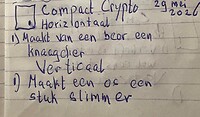 Compact Crypto 29 mei 2026
Horizontaal
1) Maakt van een beer een
knaagdier
Verticaal
1) Maakt een os een
stuk slimmer